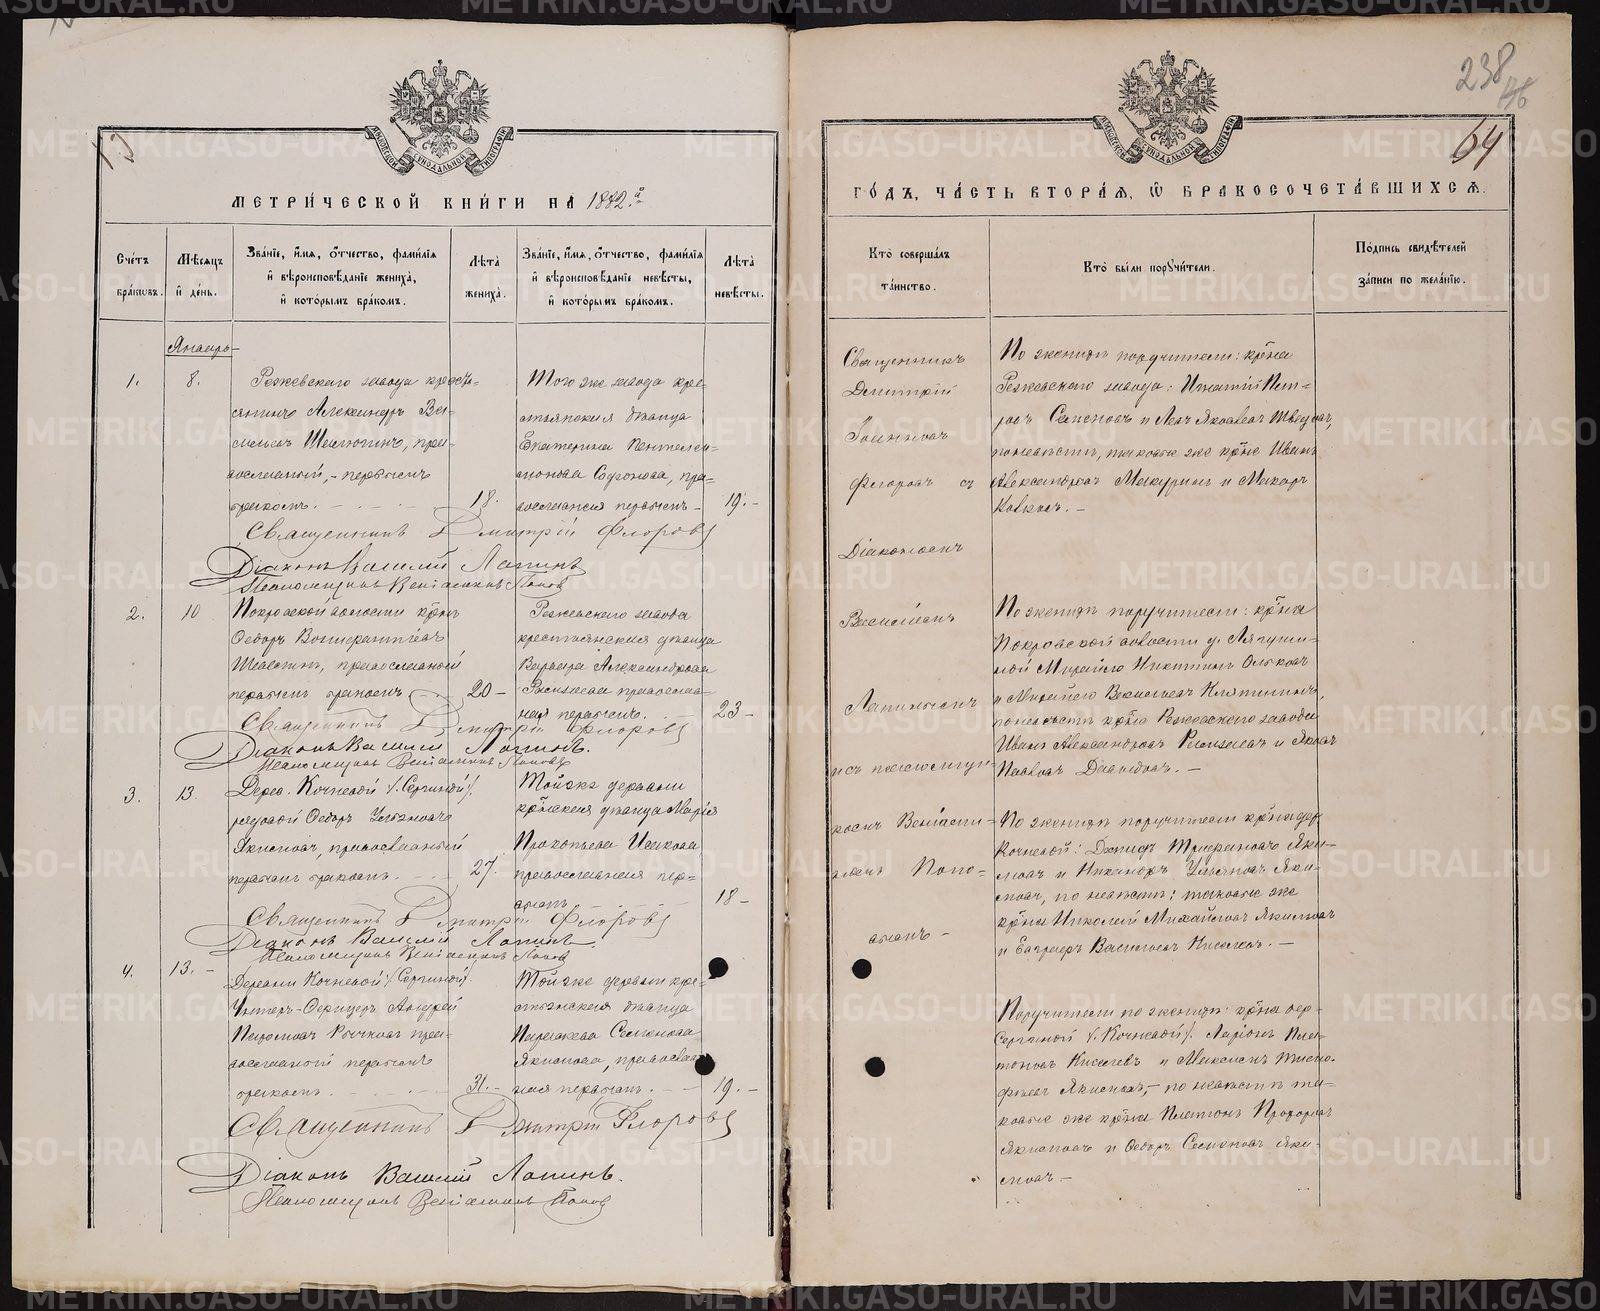 МЕТРИ́ЧЕСКОЙ КНИ́ГИ НА 1882.й
Сче́тъ бра́ковъ.
Мѣ́сяцъ и҆ де́нь.
Зва́нїе, и҆́мя, ѻ҆́тчество, фами́лїя
и҆ вѣроисповѣ́данїе жениха̀,
и҆ кото́рымъ бра́комъ.
Лѣ́та жениха̀.
Зва́нїе, и҆́мя, ѻ҆́тчество, фами́лїя
и҆ вѣроисповѣ́данїе невѣ́сты,
и҆ кото́рымъ бра́комъ.
Лѣ́та невѣ́сты.
Январь
1. 8.
Режевскаго завода кресть-
янинъ Александръ Ва-
сильевъ
православный, - первымъ
бракомъ. 18.
Того же завода кре-
стьянская дѣвица
Екатерина Пантелеи-
монова Софонова, пра-
вославная первымъ - 19. -
Священникъ Дмитрій Флоровъ
Діаконъ Василій Лапинъ
Псаломщикъ Веніаминъ Поповъ
2. 10
Покровской волости кр̃нъ
Ѳедоръ
православный
первымъ бракомъ 20 -
Режевскаго завода
крестьянская дѣвица
Варвара Александрова
православ-
ная первымъ. 23 -
Священникъ Дмитрій Флоровъ
Діаконъ Василій Лапинъ.
Псаломщикъ Веніаминъ Поповъ
3. 13.
Дерев. Кочневой /:Сергиной/.
рядовой Ѳедоръ Ульяновъ
Якимовъ, православный
первымъ бракомъ. 27.
Той же деревни
кр̃нская дѣвица Марія
Прокопьева Исакова
православная пер-
вымъ. 18 -
Священникъ Дмитрій Флоровъ
Діаконъ Василій Лапинъ
Псаломщикъ Веніаминъ Поповъ
4. 13. -
Деревни Кочневой /:Сергиной/.
Унтеръ-Офицеръ Андрей
Пахомовъ Рычковъ пра-
вославный первымъ
бракомъ. 31. -
Той же деревни кре-
стьянская дѣвица
Параскева Семенова
Якимова, православ-
ная первымъ. 19. -
Священникъ Дмитрій Флоровъ
Діаконъ Василій Лапинъ.
Псаломщикъ Веніаминъ Поповъ
238
64
ГО́ДЪ, ЧА́СТЬ ВТОРА́Я, Ѡ҆ БРАКОСОЧЕТА́ВШИХСЯ.
Кто̀ соверша́лъ та́инство.
Кто̀ бы́ли порꙋчи́тели.
По́дпись свидѣ́телей
за́писи по жела́нїю.
Священникъ
Дмитрій
Іоанновъ
Флоровъ съ
Діакономъ
Василіемъ
Лапинымъ
и съ псаломщи-
комъ Веніами-
номъ Попо-
вымъ -
По женихѣ поручители: кр̃не
Режевскаго завода: Игнатій Пет-
ровъ Семеновъ и Левъ Яковлевъ Шведовъ,
по невѣстѣ, таковые же кр̃не Иванъ
Александровъ Мокурин и Макаръ
. -
По женихѣ поручители: кр̃не
Покровской волости д.
Михайло Никитинъ
и Михайло Васильевъ
по невѣстѣ кр̃не Режевскаго завода
Иванъ Александровъ и Яковъ
Павловъ Давыдовъ. -
По женихѣ поручители кр̃не дер.
Кочневой: Трифановъ Яки-
мовъ и Никаноръ Ульяновъ Яки-
мовъ, по невѣстѣ: таковые же
кр̃не Николай Михайловъ Якимовъ
и Васильевъ Киселевъ. -
Поручители по женихѣ: кр̃не дер.
Сергиной /:Кочневой/. Ларіонъ Пла-
тоновъ Киселевъ и Максимъ Тимо-
феевъ Якимовъ, - по невѣстѣ та-
ковые же кр̃не Платонъ Прохоровъ
Якимовъ и Ѳедоръ Семеновъ Яки-
мовъ -
METRIKI.GASO-URAL.RU